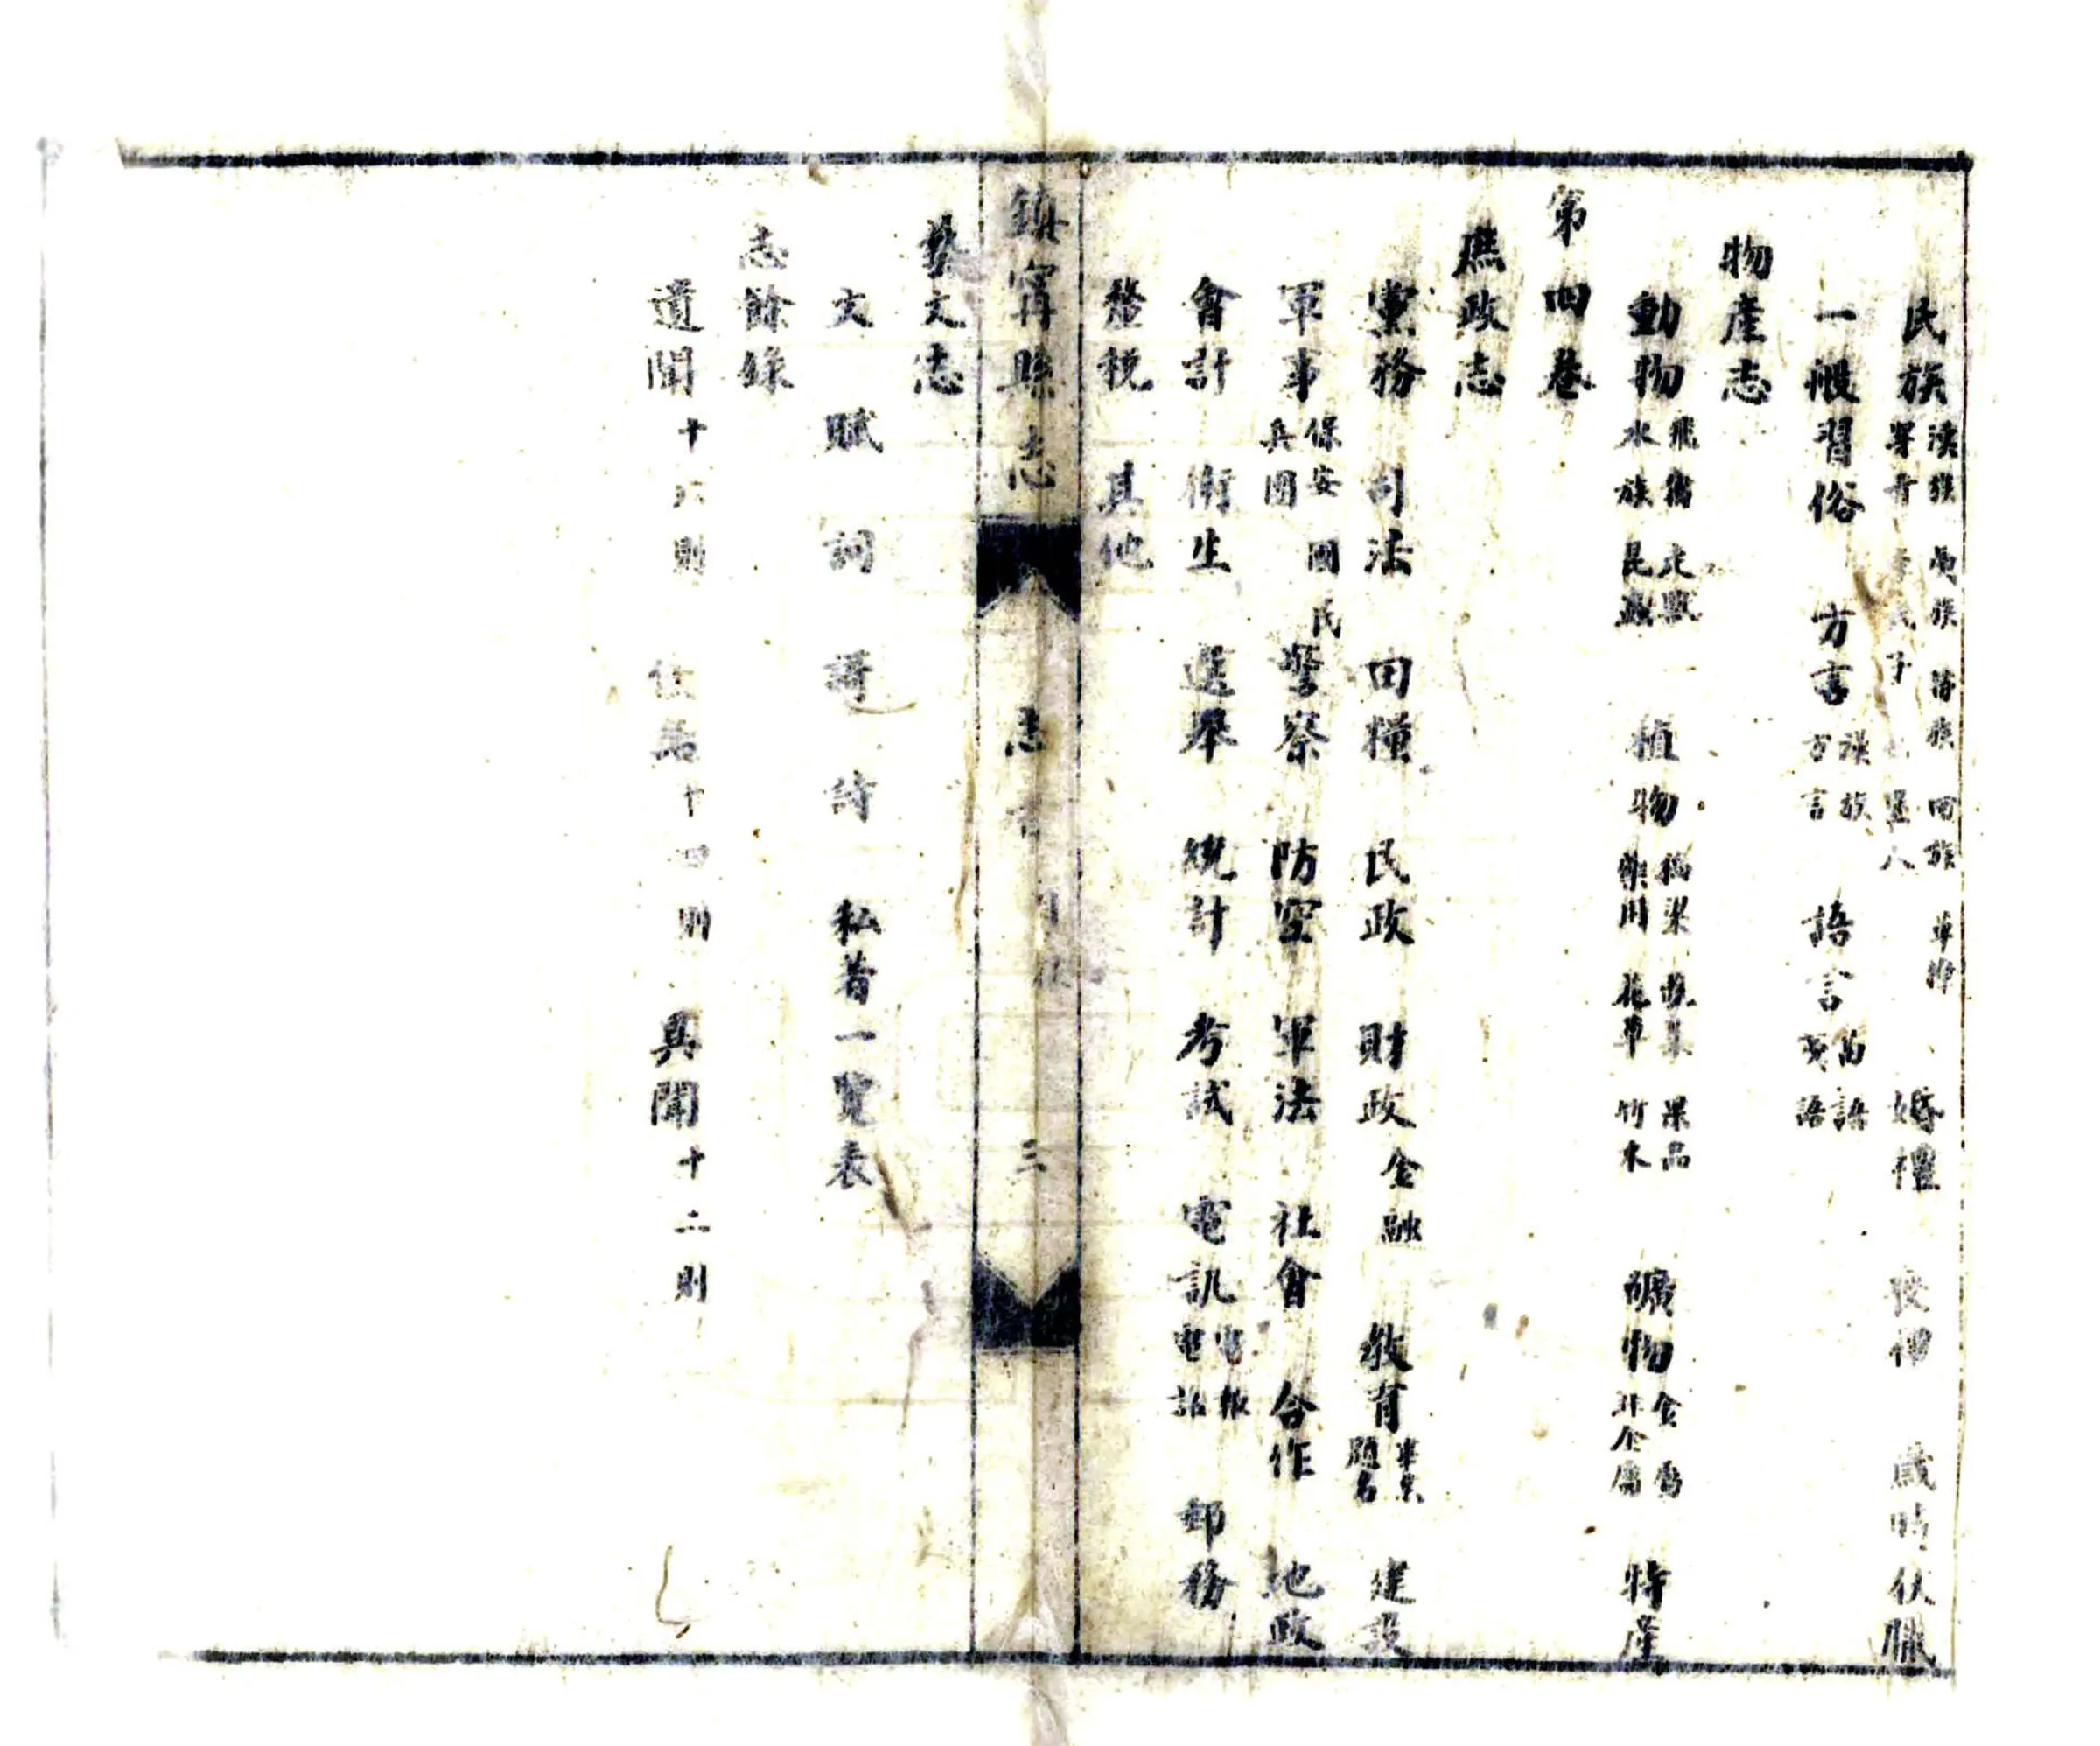 民族 漢族 夷族 苗族 回族 革獞 婚禮 喪禮 歲時伏臘
一般習俗 方言 漢族方言 語言 苗語 夷語
物產志
動物 飛禽 走獸 水族 昆蟲 植物 稻梁 蔬菜 果品 藥用 花草 竹木 礦物 金屬 非金屬 特產
第四卷
庶政志
黨務 司法 田糧 民政 財政 金融 教育 畢業題名 建設
軍事 保安團 國民兵團 警察 防空 軍法 社會 合作 地政
會計 衛生 選舉 統計 考試 電訊 電報 電話 郵務
整稅 其他
鎮甯縣志 志 目 三
藝文志
文 賦 詞 謌 詩 私著一覽表
志餘錄
遺聞十六則 佚 十四則 異聞十二則